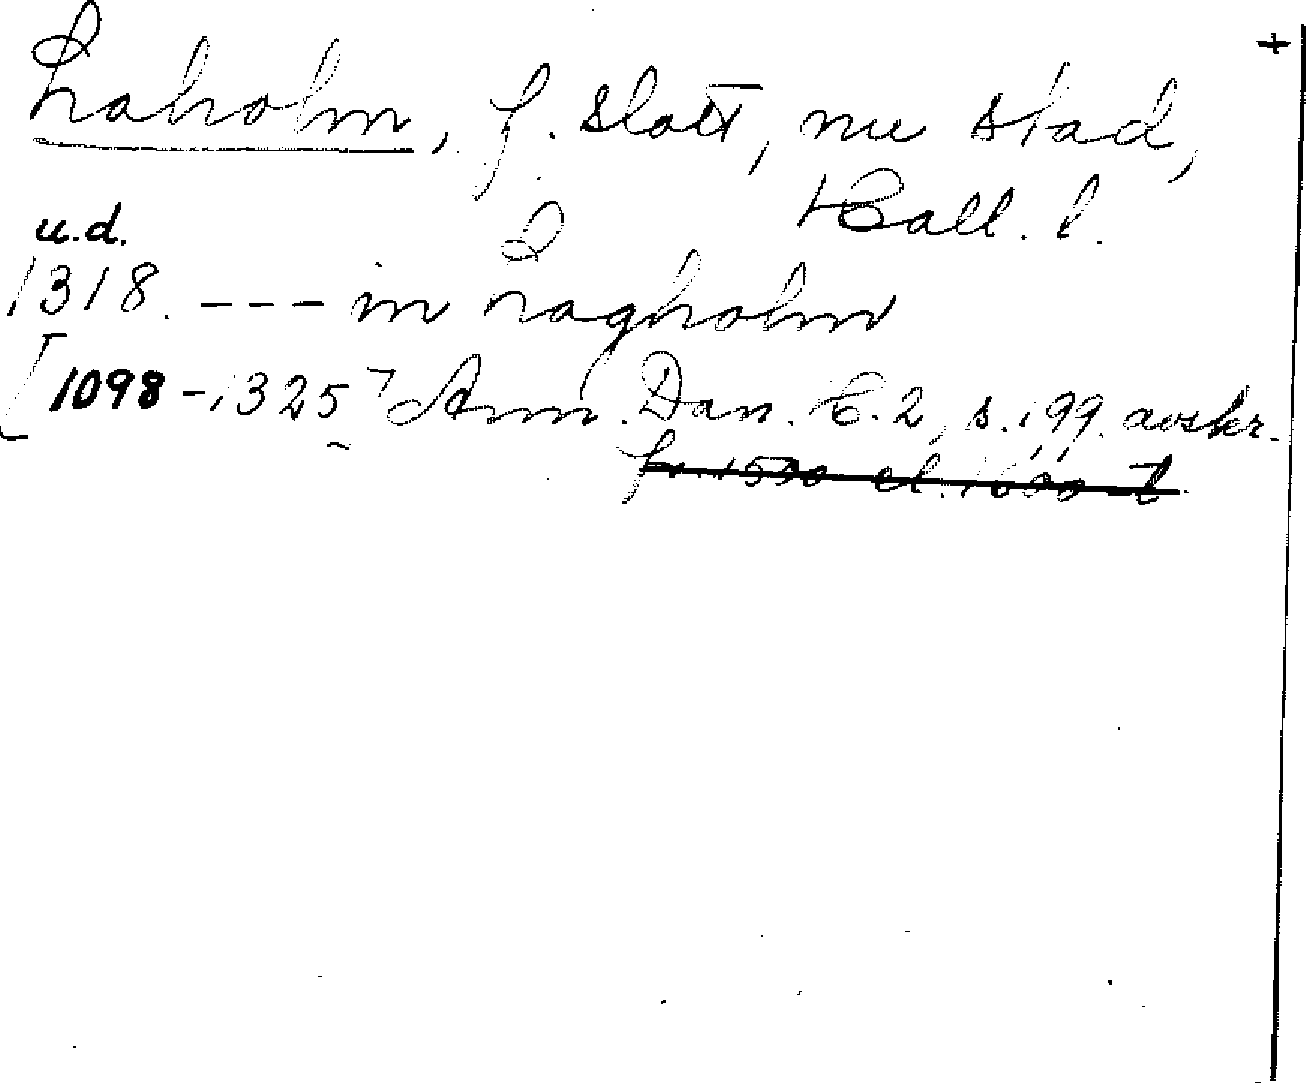 +
Laholm, f. slott, nu stad,
Hall. l.
u.d.
1318. --- in Lagholm
[1098-1325] Ann. Dan. C. 2, s. 199. avskr.
fr. 1550 el. 1600-t.